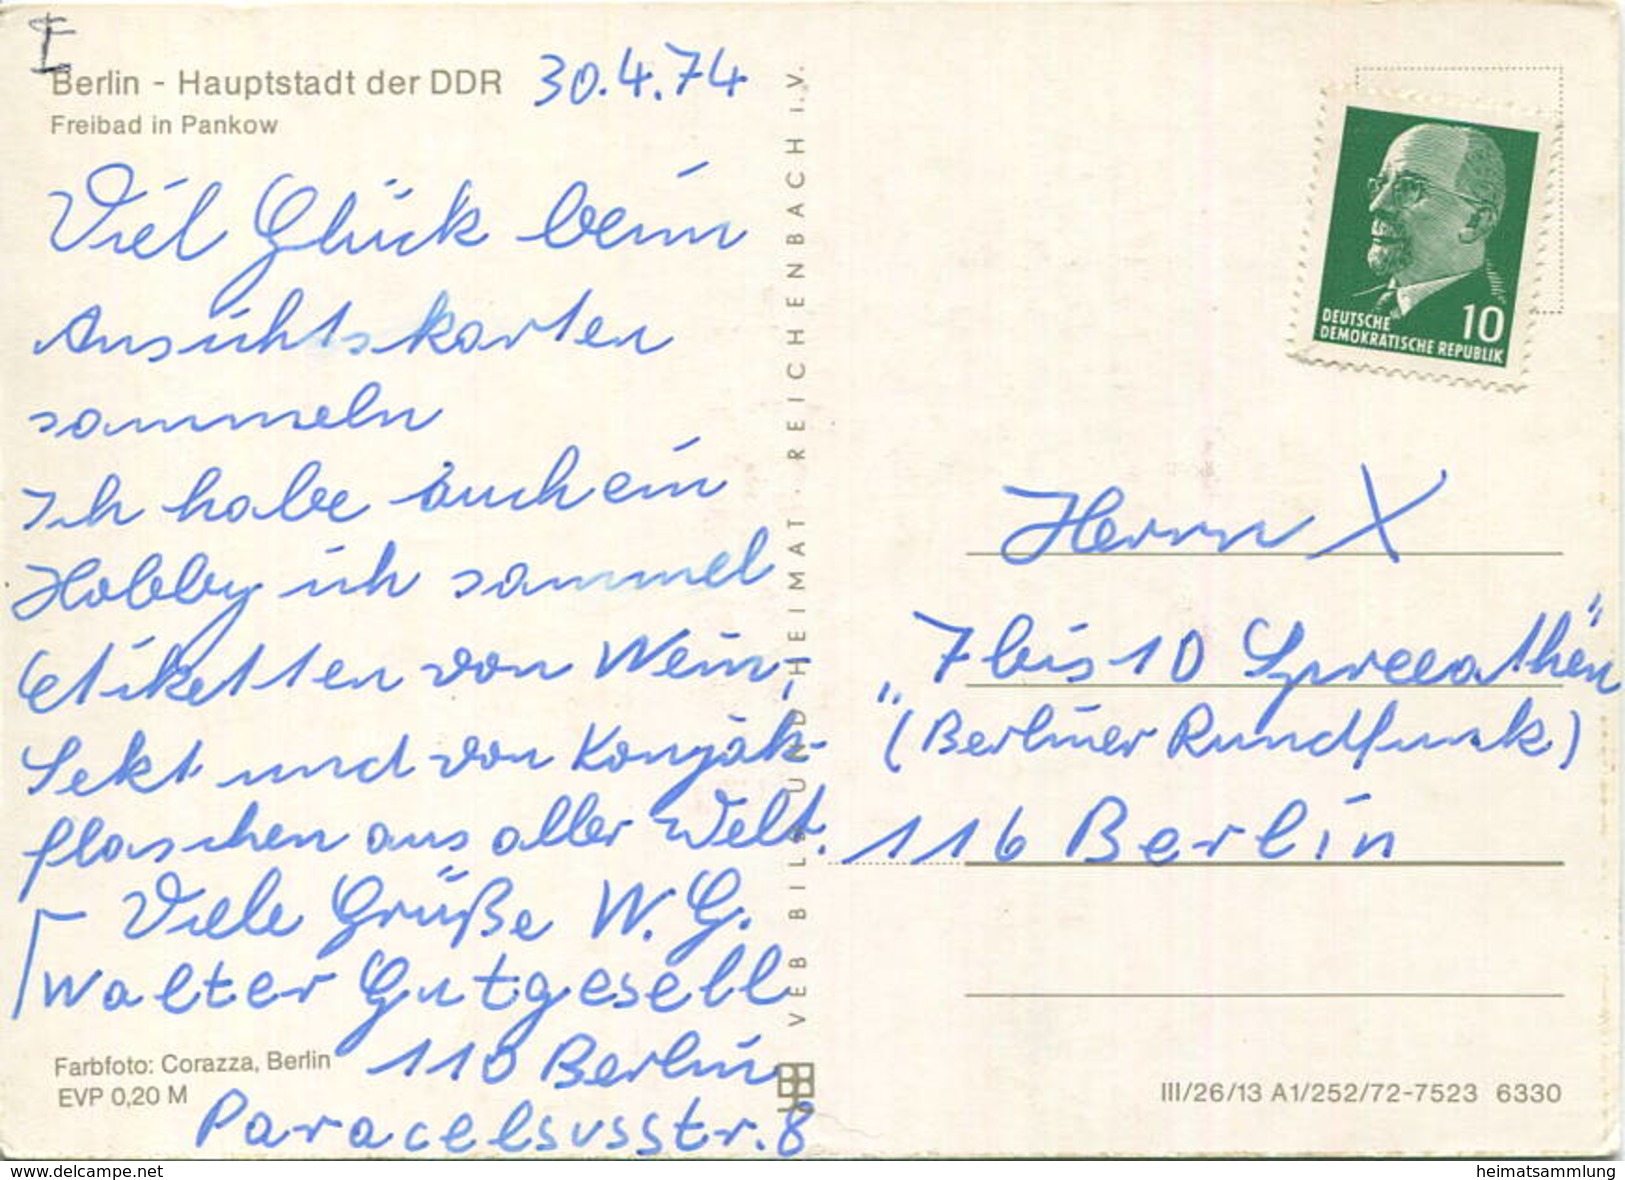 I
Berlin - Hauptstadt der DDR 30.4.74
Freibad in Pankow
Viel Glück beim
Ansichtskarten
sammeln
Ich habe auch ein
Hobby ich sammel
Etiketten von Wein,-
Sekt und von Konjak-
flaschen aus aller Welt.
Viele Grüße W. G.
Walter Gutgesell
110 Berlin
Paracelsusstr. 8
Farbfoto: Corazza, Berlin
EVP 0,20 M
VEB BILD UND HEIMAT · REICHENBACH i. V.
DEUTSCHE
DEMOKRATISCHE REPUBLIK
10
Herrn X
„7 bis 10 Spreeathen“
(Berliner Rundfunk)
116 Berlin
III/26/13 A1/252/72-7523 6330
www.delcampe.net
heimatsammlung